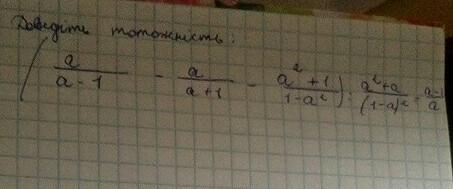 Доведіть тотожність:
( a/(a-1) - a/(a+1) - (a²+1)/(1-a²) ) : (a²+a)/(1-a)² = (a-1)/a